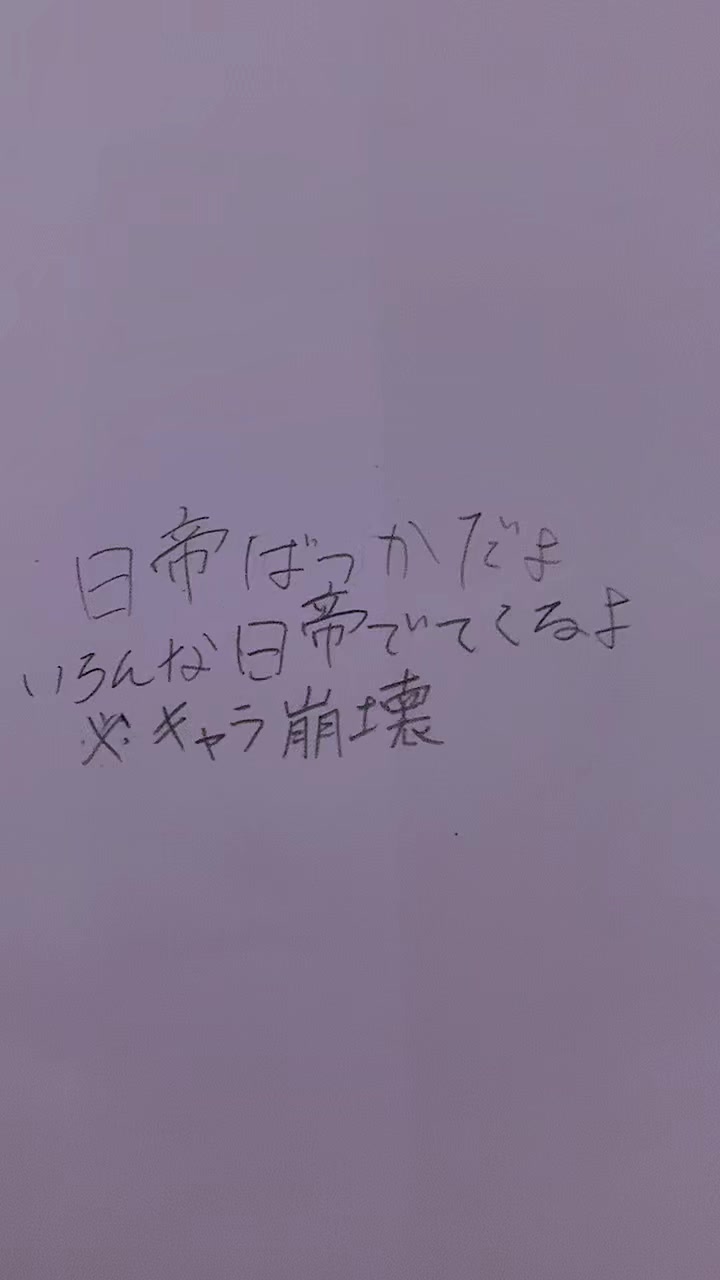 日帝ばっかだよ
いろんな日帝でてくるよ
※キャラ崩壊